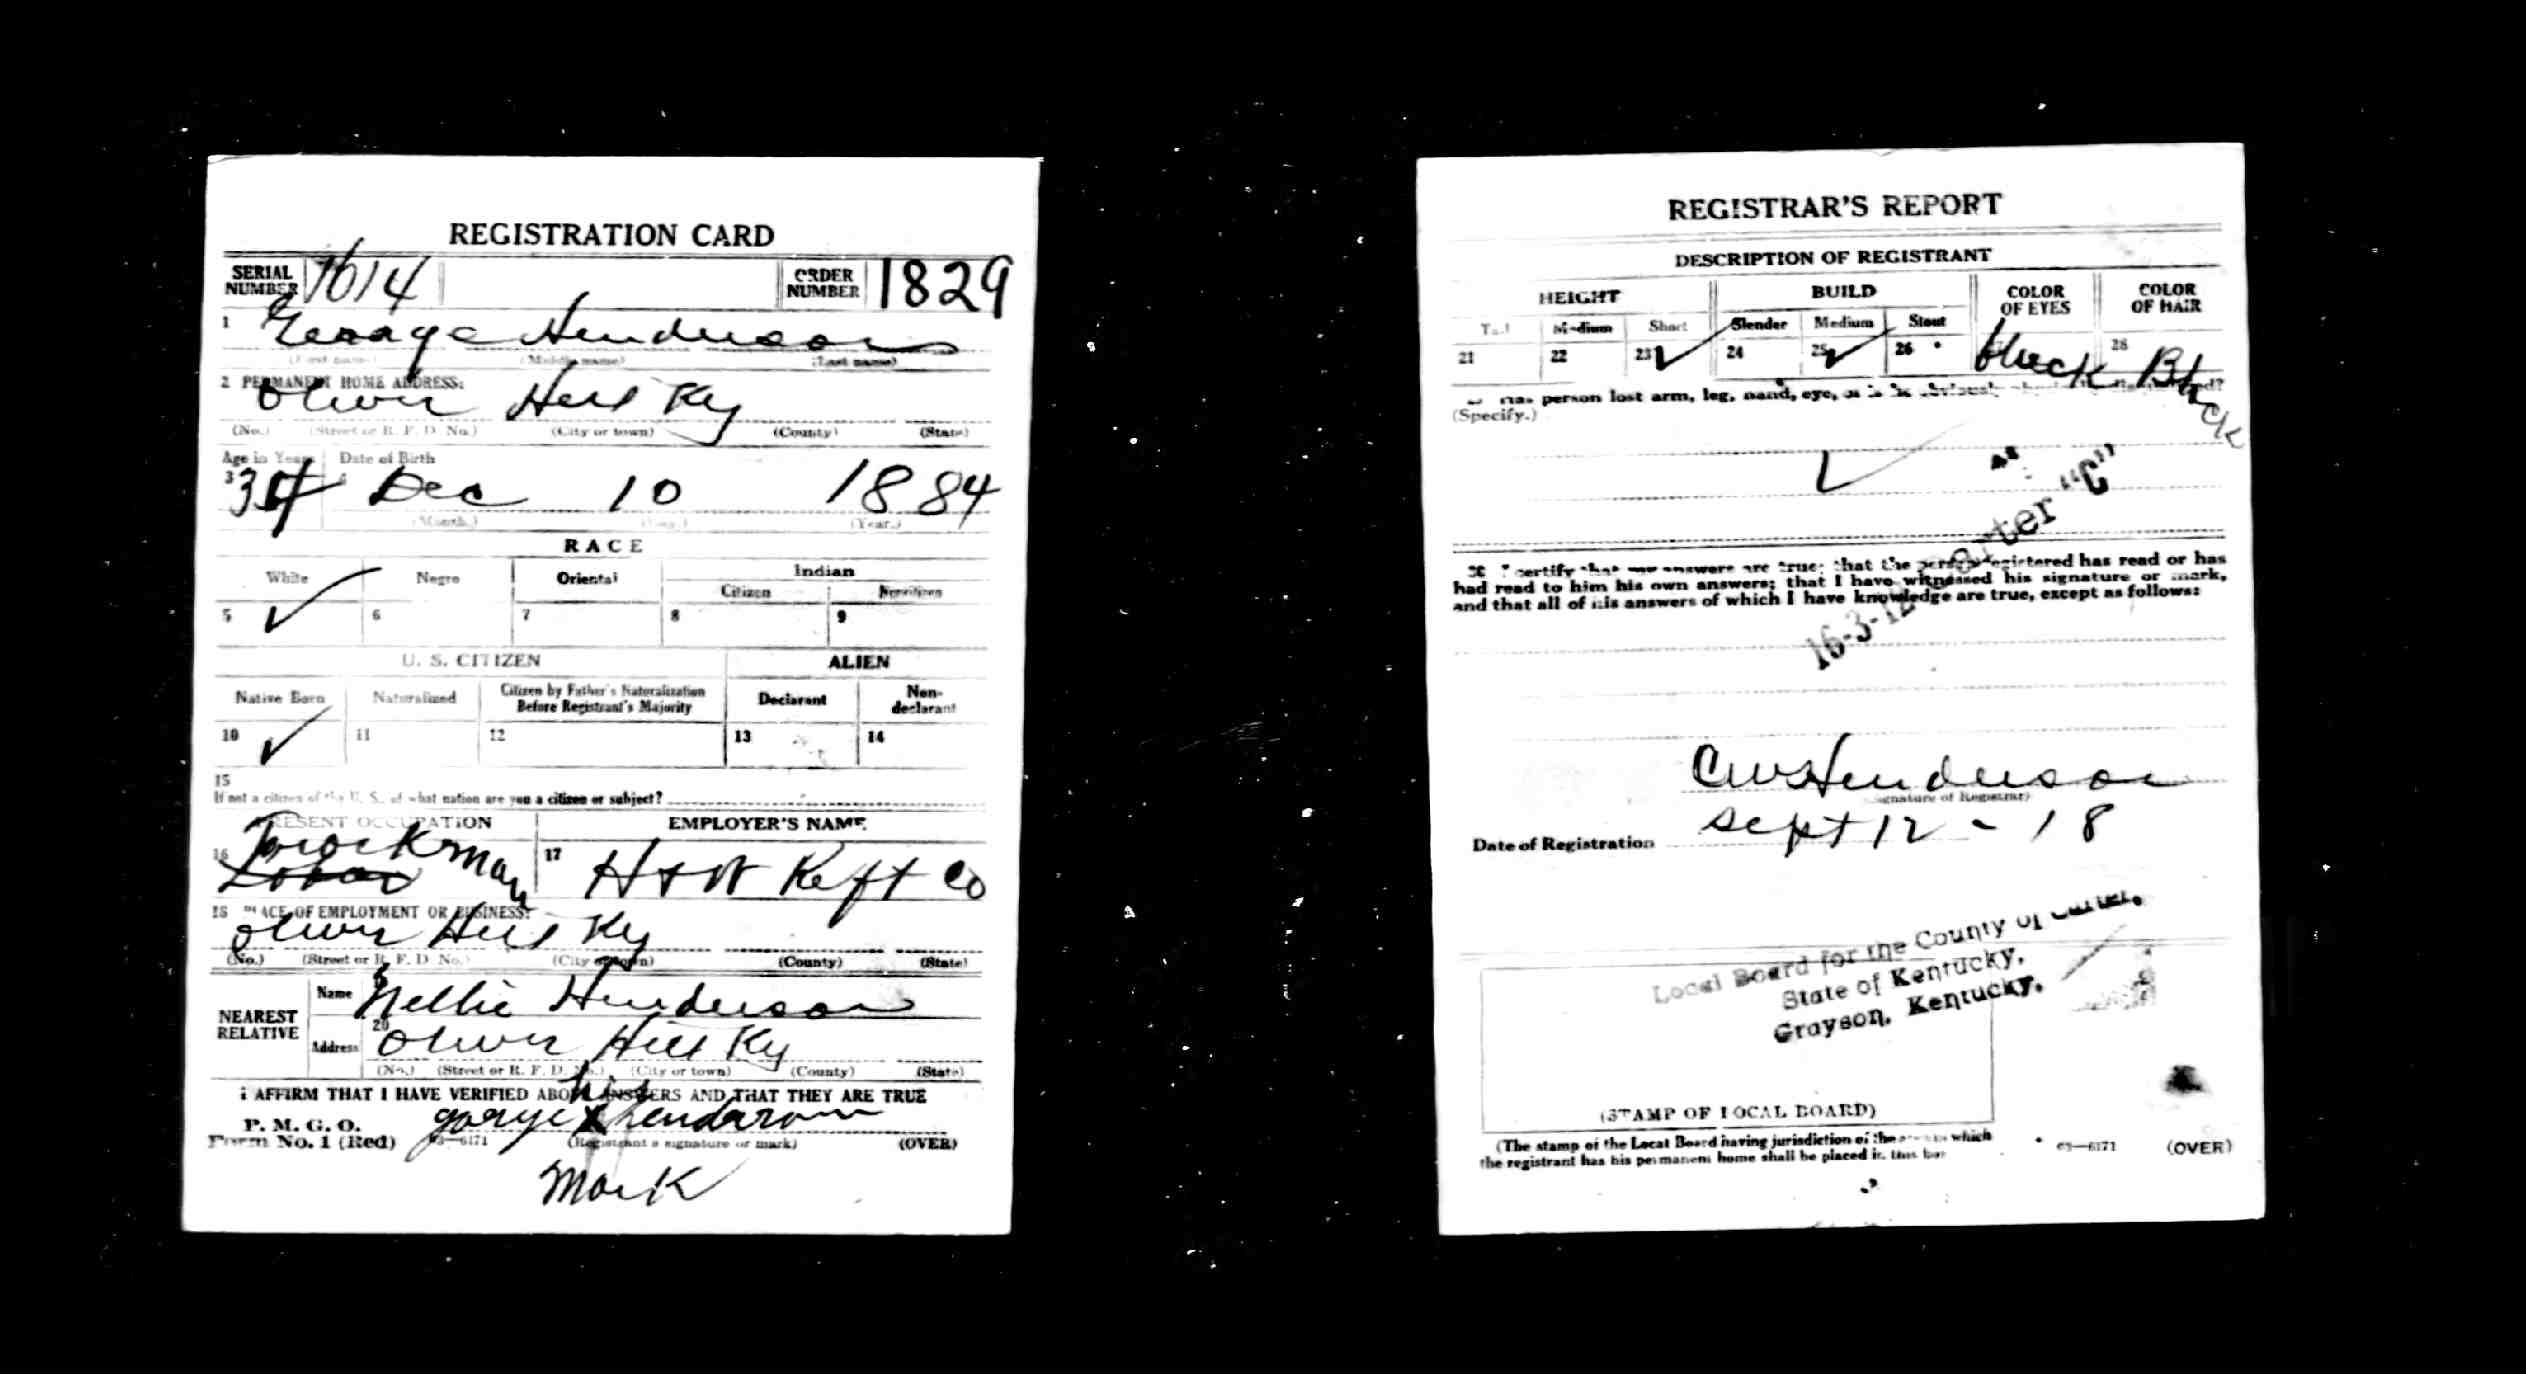 REGISTRATION CARD
SERIAL NUMBER 1614 ORDER NUMBER 1829
1 George Henderson
(First name) (Middle name) (Last name)
2 PERMANENT HOME ADDRESS:
Oliver Hill Ky
(No.) (Street or R. F. D. No.) (City or town) (County) (State)
Age in Years Date of Birth
3 34 Dec 10 1884
(Month.) (Day.) (Year.)
RACE
White Negro Oriental Indian
Citizen Noncitizen
5 ✓ 6 7 8 9
U. S. CITIZEN ALIEN
Native Born Naturalized Citizen by Father's Naturalization Before Registrant's Majority Declarant Non-declarant
10 ✓ 11 12 13 14
15
If not a citizen of the U. S., of what nation are you a citizen or subject?
PRESENT OCCUPATION EMPLOYER'S NAME
16 17 H + W Reft Co
18 PLACE OF EMPLOYMENT OR BUSINESS:
Oliver Hill Ky
(No.) (Street or R. F. D. No.) (City or town) (County) (State)
NEAREST RELATIVE Name Nellie Henderson
20 Address Oliver Hill Ky
(No.) (Street or R. F. D. No.) (City or town) (County) (State)
I AFFIRM THAT I HAVE VERIFIED ABOVE ANSWERS AND THAT THEY ARE TRUE
his
P. M. G. O.
Form No. 1 (Red) 03—6171 George X Henderson (Registrant's signature or mark) (OVER)
Mark
REGISTRAR'S REPORT
DESCRIPTION OF REGISTRANT
HEIGHT BUILD COLOR OF EYES COLOR OF HAIR
Tall Medium Short Slender Medium Stout
21 22 23 ✓ 24 25 ✓ 26 Black 28 Black
person lost arm, leg, hand, eye,
(Specify.)
✓
16-3-12 Carter "C"
30 I certify that my answers are true; that the person registered has read or has
had read to him his own answers; that I have witnessed his signature or mark,
and that all of his answers of which I have knowledge are true, except as follows:
CW Henderson
(Signature of Registrar)
Date of Registration Sept 12 - 18
Local Board for the County of Carter,
State of Kentucky,
Grayson, Kentucky.
(STAMP OF LOCAL BOARD)
(The stamp of the Local Board having jurisdiction of the area in which
the registrant has his permanent home shall be placed in this box
03—6171 (OVER)